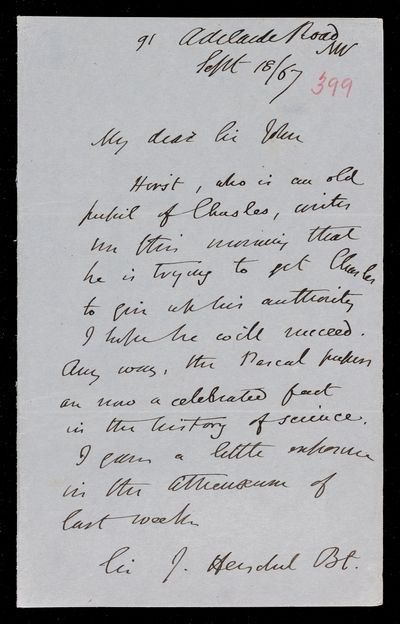 91 Adelaide Road
NW
Sept 18/67
399
My dear Sir John
Hirst, who is an old
pupil of Chasles, writes
me this morning that
he is trying to get Chasles
to give up his authority
I hope he will succeed.
Any way, the Pascal papers
are now a celebrated fact
in the history of science.
I gave a little
in the Athenaeum of
last week
Sir J. Herschel Bt.